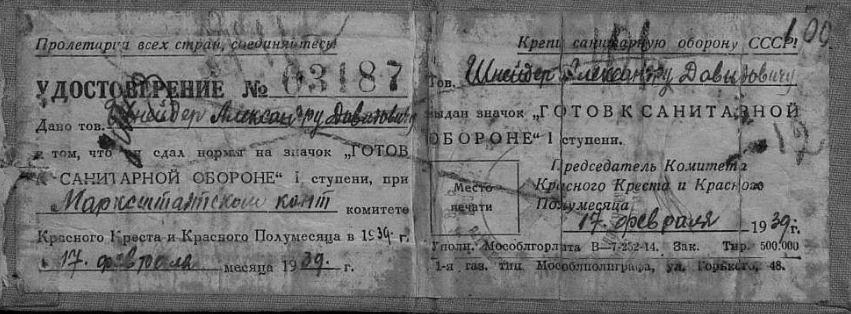 Пролетарии всех стран, соединяйтесь!
УДОСТОВЕРЕНИЕ № 03187
Дано тов. Шнейдер Александру Давидовичу
в том, что он сдал нормы на значок „ГОТОВ
К САНИТАРНОЙ ОБОРОНЕ" I ступени, при
Марксштатском конт
комитете
Красного Креста и Красного Полумесяца в 1939 г.
17 февраля месяца 1939 г.
Крепи санитарную оборону СССР!
100
Тов. Шнейдер Александру Давидовичу
выдан значок „ГОТОВ К САНИТАРНОЙ
ОБОРОНЕ" I ступени.
12
Председатель Комитета
Красного Креста и Красного
Полумесяца
Место
печати
17 февраля 1939 г.
Уполн. Мособлгорлита В—7-252-14. Зак. Тир. 500.000
1-я газ. тип. Мособлполиграфа, ул. Горького, 48.